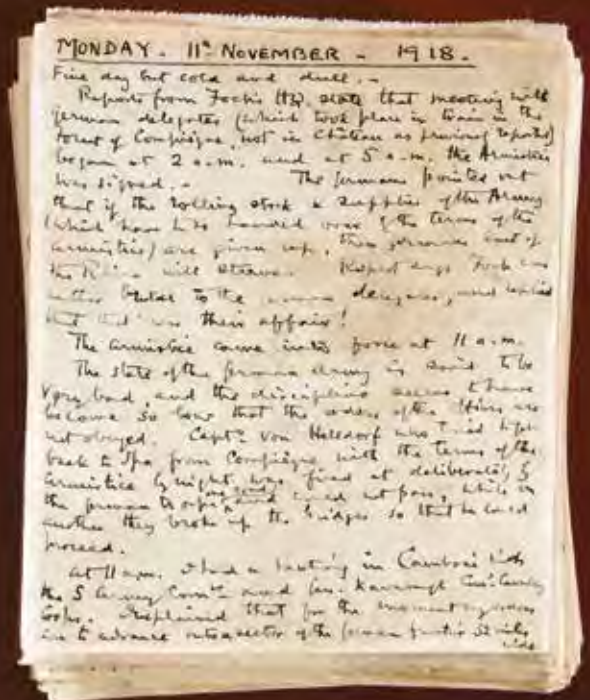 MONDAY. 11th NOVEMBER - 1918.
Fine day but cold and dull. -
Reports from Foch's HQ. state that meeting with
german delegates (which took place in train in the
forest of Compiègne, not in Château as previously reported)
began at 2 a.m. and at 5 a.m. the Armistice
was signed. - The Germans pointed out
that if the rolling stock & supplies of the Army
(which have to be handed over by the terms of the
armistice) are given up, then Germans east of
the Rhine will starve. Report says Foch was
rather brutal to the german delegates, and replied
that that was their affair!
The armistice came into force at 11 a.m.
The state of the German Army is said to be
very bad, and the discipline seems to have
become so low that the orders of the Officers are
not obeyed. Captn von Helldorf who tried to get
back to Spa from Compiègne with the terms of the
armistice by night was fired at deliberately by
the german troops and could not pass, while in
another they broke up the bridges so that he could
proceed.
At 11 a.m. I had a meeting in Cambrai with
the 5 Army Comdrs and Gen. Kavanagh Comdg Cavalry
Corps. I explained that for the moment my orders
are to advance onto sector of the german frontier 32 miles
wide